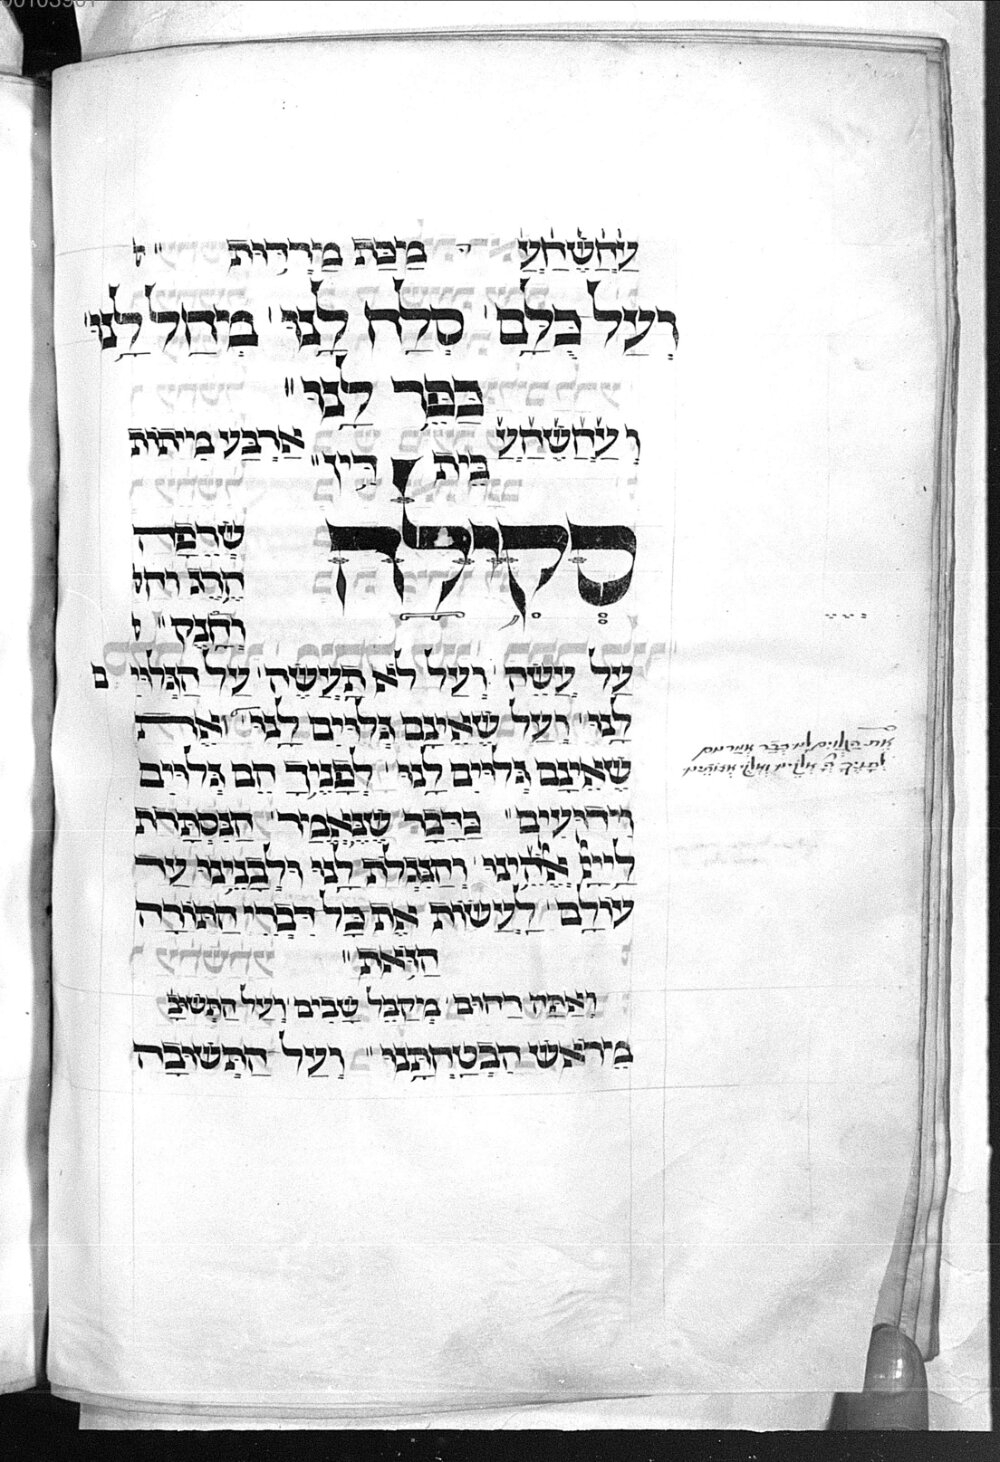 עַחַשַחַעַ מַכַּת מַרְדּוּת
וְעַל כֻּלָּם סְלַח לָנוּ מְחַל לָנוּ
כַּפֵּר לָנוּ
וְעַחַשַחַעַ אַרְבַּע מִיתוֹת
בֵּית דִּין
סְקִילָה
שְׂרֵפָה
הֶרֶג וחס
וְחֶנֶק
עַל עֲשֵׂה וְעַל לֹא תַעֲשֶׂה עַל הַגְּלוּיִם
לָנוּ וְעַל שֶׁאֵינָם גְּלוּיִם לָנוּ וְאֶת
שֶׁאֵינָם גְּלוּיִם לָנוּ לְפָנֶיךָ הֵם גְּלוּיִם
וִידוּעִים כַּדָּבָר שֶׁנֶּאֱמַר הַנִּסְתָּרֹת
לַייָ אֱלֹהֵינוּ וְהַנִּגְלֹת לָנוּ וּלְבָנֵינוּ עַד
עוֹלָם לַעֲשׂוֹת אֶת כָּל דִּבְרֵי הַתּוֹרָה
הַזֹּאת
וְאַתָּה רַחוּם מְקַבֵּל שָׁבִים וְעַל הַתְּשׁוּבָ
מֵרֹאשׁ הִבְטַחְתָּנוּ וְעַל הַתְּשׁוּבָה
אֶת הַגְּלוּיִם לָנוּ כְּבָר אֲמַרְנוּם